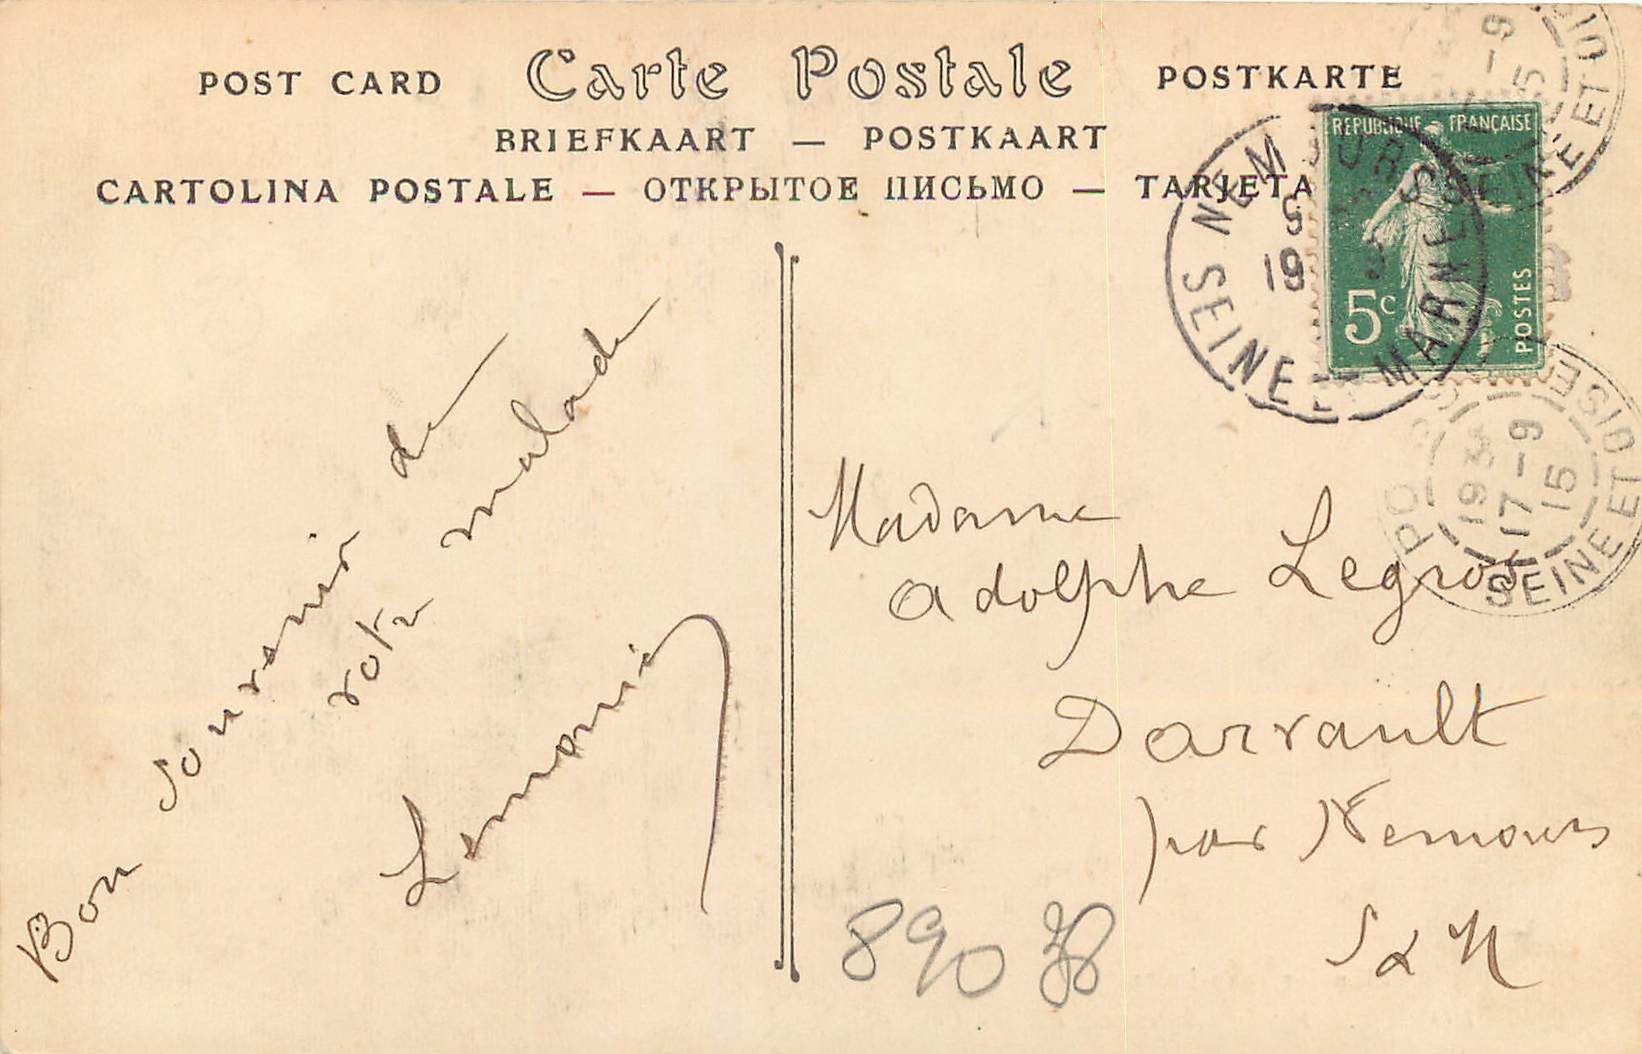 POST CARD Carte Postale POSTKARTE
BRIEFKAART — POSTKAART
CARTOLINA POSTALE — ОТКРЫТОЕ ПИСЬМО — TARJETA
REPUBLIQUE FRANÇAISE
5c
POSTES
NEMOURS
SEINE ET MARNE
19
-9
15
SEINE ET OISE
SEINE ET OISE
19 35
17-9
15
Bon souvenir de
votre malade
Lemonier
Madame
Adolphe Legros
Darvault
par Nemours
S & M
890